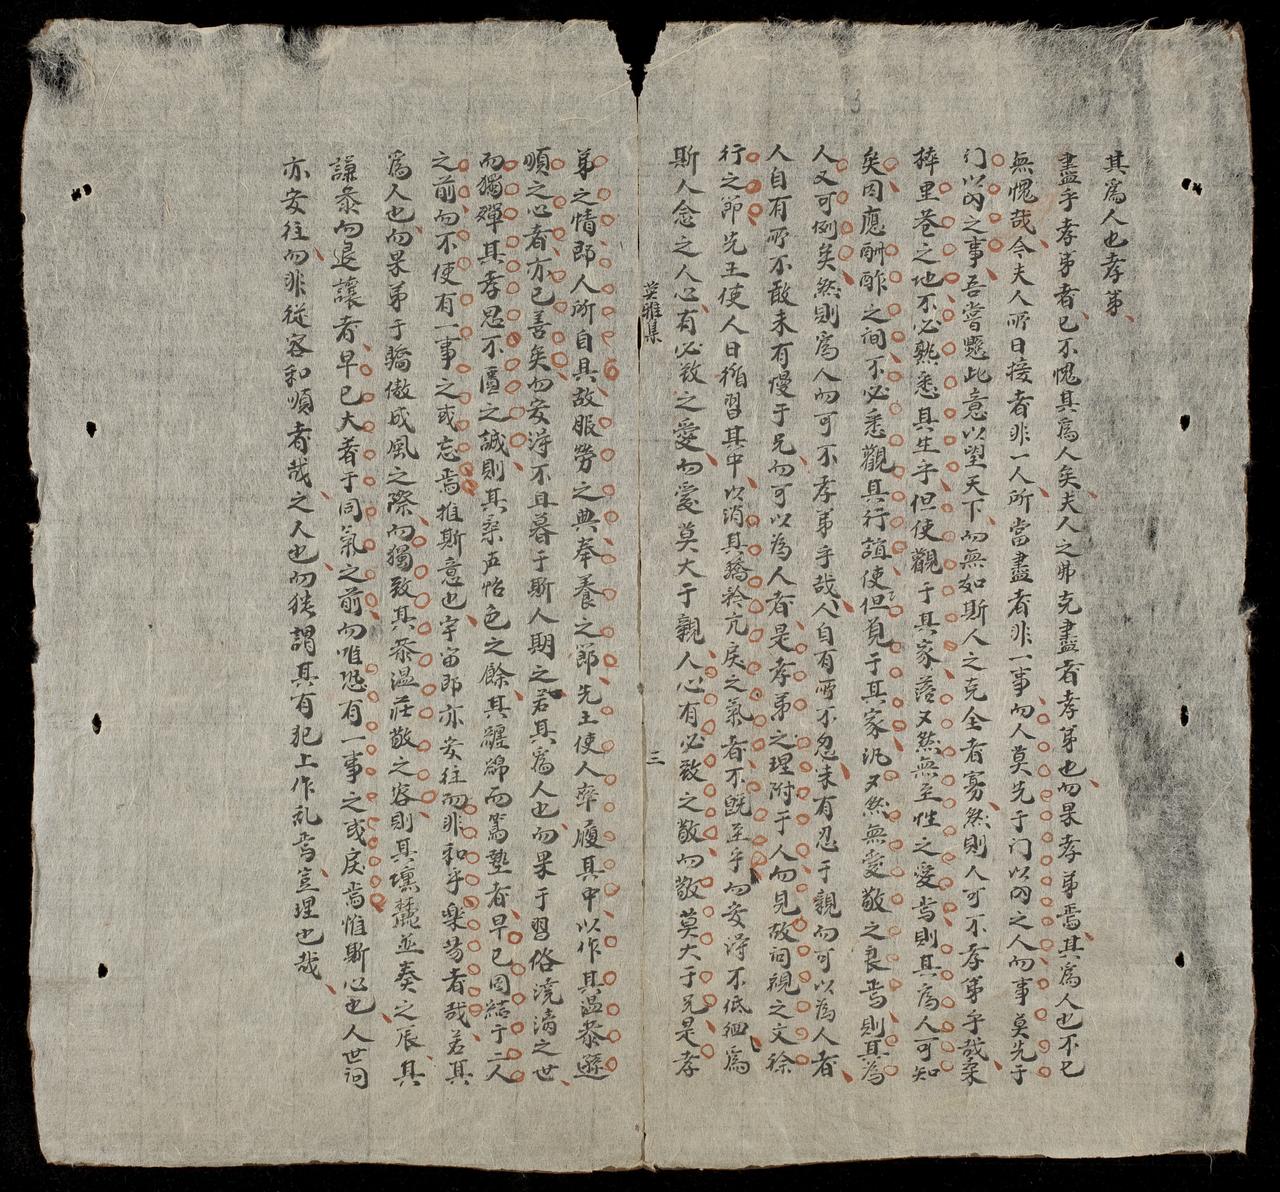 其為人也孝弟
盡乎孝弟者已不愧其為人矣夫人之弗克盡者孝弟也而果孝弟焉其為人也不已
無愧哉今夫人所日接者非一人所當盡者非一事而人莫先于门以內之人而事莫先于
门以內之事吾嘗䠶此意以望天下而無如斯人之克全者寡然則人可不孝弟乎哉桑
梓里巷之地不必熟悉其生平但使觀于其家落又然無至性之愛焉則其為人可知
矣因應酬酢之间不必悉觀其行誼使但覓于其家汎又然無愛敬之良焉則其為
人又可例矣然則為人而可不孝弟乎哉人自有所不忍未有忍于親而可以為人者
人自有所不敢未有慢于兄而可以為人者是孝弟之理附于人而見故问視之文徐
行之節先王使人日循習其中以消其驕矜亢戾之氣者不旣至乎而安淂不低徊為
斯人念之人心有必致之愛而愛莫大于親人心有必致之敬而敬莫大于兄是孝
英雅集
三
弟之情即人所自具故服勞之典奉養之節先王使人率履其中以作其温恭遜
順之心者亦已善矣而安淂不旦暮于斯人期之若其為人也而果于習俗澆漓之世
而獨殫其孝思不匱之誠則其柔声怡色之餘其纏綿而篤摯者早已固結于二人
之前而不使有一事之或忘焉推斯意也宇宙即亦安往而非和乎樂昜者哉若其
為人也而果弟于驕傲成風之際而獨致其恭温莊敬之容則其壎篪並奏之辰其
謙恭而退讓者早已大著于同氣之前而唯恐有一事之或戾焉惟斯心也人世间
亦安往而非從容和順者哉之人也而猶謂其有犯上作乱焉豈理也哉